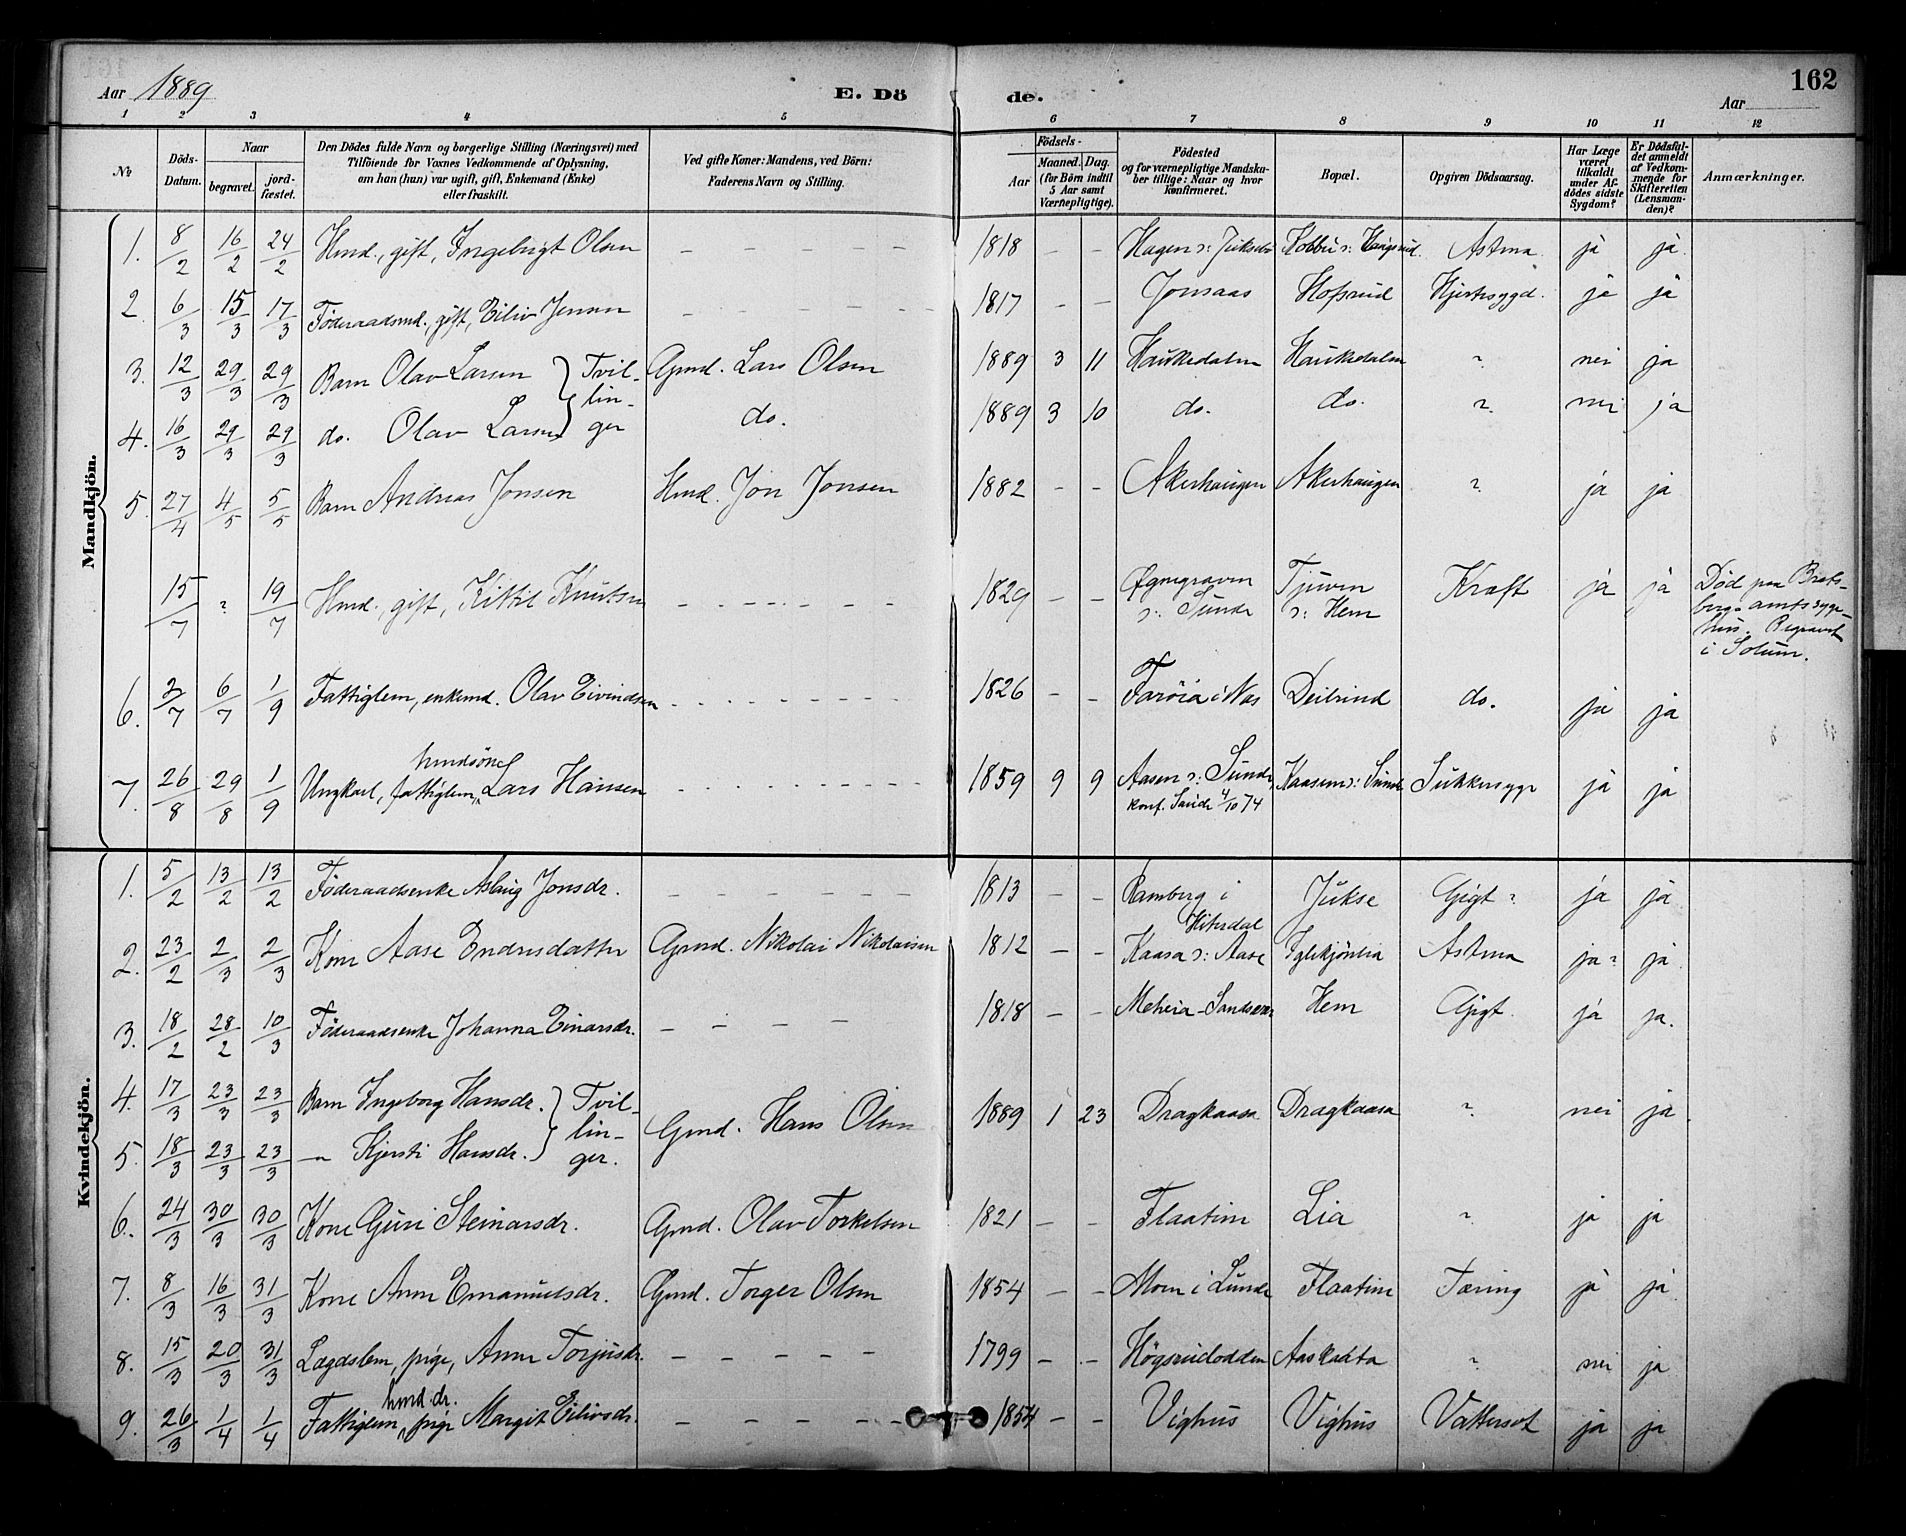 Aar 1889 E. Dö de. Aar 162
1 2 3 4 5 6 7 8 9 10 11 12
No Döds-Datum. Naar begravet. jord-fæstet. Den Dödes fulde Navn og borgerlige Stilling (Næringsvei) med Tilföiende for Voxnes Vedkommende af Oplysning, om han (hun) var ugift, gift, Enkemand (Enke) eller fraskilt. Ved gifte Koner: Mandens, ved Börn: Faderens Navn og Stilling. Födsels- Aar Maaned. Dag. (for Börn indtil 5 Aar samt Værnepligtige). Födested og for værnepligtige Mandskaber tillige: Naar og hvor Konfirmeret. Bopæl. Opgiven Dödsaarsag. Har Læge været tilkaldt under Afdödes sidste Sygdom? Er Dödsfaldet anmeldt af Vedkommende for Skifteretten (Lensmanden)? Anmærkninger.
Mandkjön.
1. 8/2 16/2 24/2 Hmd., gift, Ingebrigt Olsen – – – – – – 1818 – – Hagen Astma. ja ja.
2. 6/3 15/3 17/3 Föderaadsmd., gift, Eiliv Jensen – – – – – – 1817 – – Jonsaas Hofsrud Hjertesygd. ja ja
3. 12/3 29/3 29/3 Barn Olav Larsen } Tvil- Gmd. Lars Olsen 1889 3 11 Haukedalen Haukedalen ? nei ja
lin-
4. 16/3 29/3 29/3 do. Olav Larsen } ger do. 1889 3 10 do. do. ? nei ja
5. 27/4 4/5 5/5 Barn Andreas Jonsen Hmd. Jon Jonsen 1882 – – Akerhaugen Akerhaugen ? ja ja
15/7 ? 19/7 Hmd., gift, Kittil Knutsen – – – – – – 1829 – – Øgnegraven ɔ: Sunde Tjuven ɔ: Hem Kræft ja ja Død paa Brats-
bergs amtssyge-
hus. Begravet
i Solum.
6. 2/7 6/7 1/9 Fattiglem, enkemd. Olav Eivindsen – – – – – – 1826 – – Farøia i Nes Deilrind do. ja ja
hmdsöns
7. 26/8 29/8 1/9 Ungkarl, fattiglem, Lars Hansen – – – – – – 1859 9 9 Aasen ɔ: Sunde, Kaasene ɔ: Sunde Sukkersyge ja ja
konf. Saude 4/10 74
Kvindekjön.
1. 5/2 13/2 13/2 Föderaadsenke Aslaug Jonsdr. – – – – – 1813 – – Ramberg i Jukse Gigt ? ja ja
Hiterdal
2. 23/2 2/3 2/3 Kone Aase Endresdatter Gmd. Nikolai Nikolaisen 1812 – – Kaasa ɔ: Aase Iglekjønlia Astma ja ? ja
3. 18/2 28/2 10/3 Föderaadsenke Johanna Einarsdr. – – – – 1818 – – Meheia-Sandsver Hem Gigt. ja ja.
4. 17/3 23/3 23/3 Barn Ingeborg Hansdr. } Tvil- Gmd. Hans Olsen 1889 1 23 Dragkaasa Dragkaasa ? nei ja.
lin-
5. 18/3 23/3 23/3 — Kjersti Hansdr. } ger.
6. 24/3 30/3 30/3 Kone Guri Steinarsdr. Gmd. Olav Torkelsen 1821 – – Flaatin Lia ? ja ja
7. 8/3 16/3 31/3 Kone Anne Emanuelsdr. Gmd. Torger Olsen 1854 – – Moen i Lunde Flaatin Tæring ja ja
8. 15/3 20/3 31/3 Lægdslem, pige, Anne Torjusdr. – – – – – 1799 – – Högsrudodden Aaskaata ? nei ja
hmd. dr.
9. 26/3 1/4 1/4 Fattiglem, pige Margit Eilivsdr. – – – – – 1854 – – Vighus Vighus Vattersot ja ja